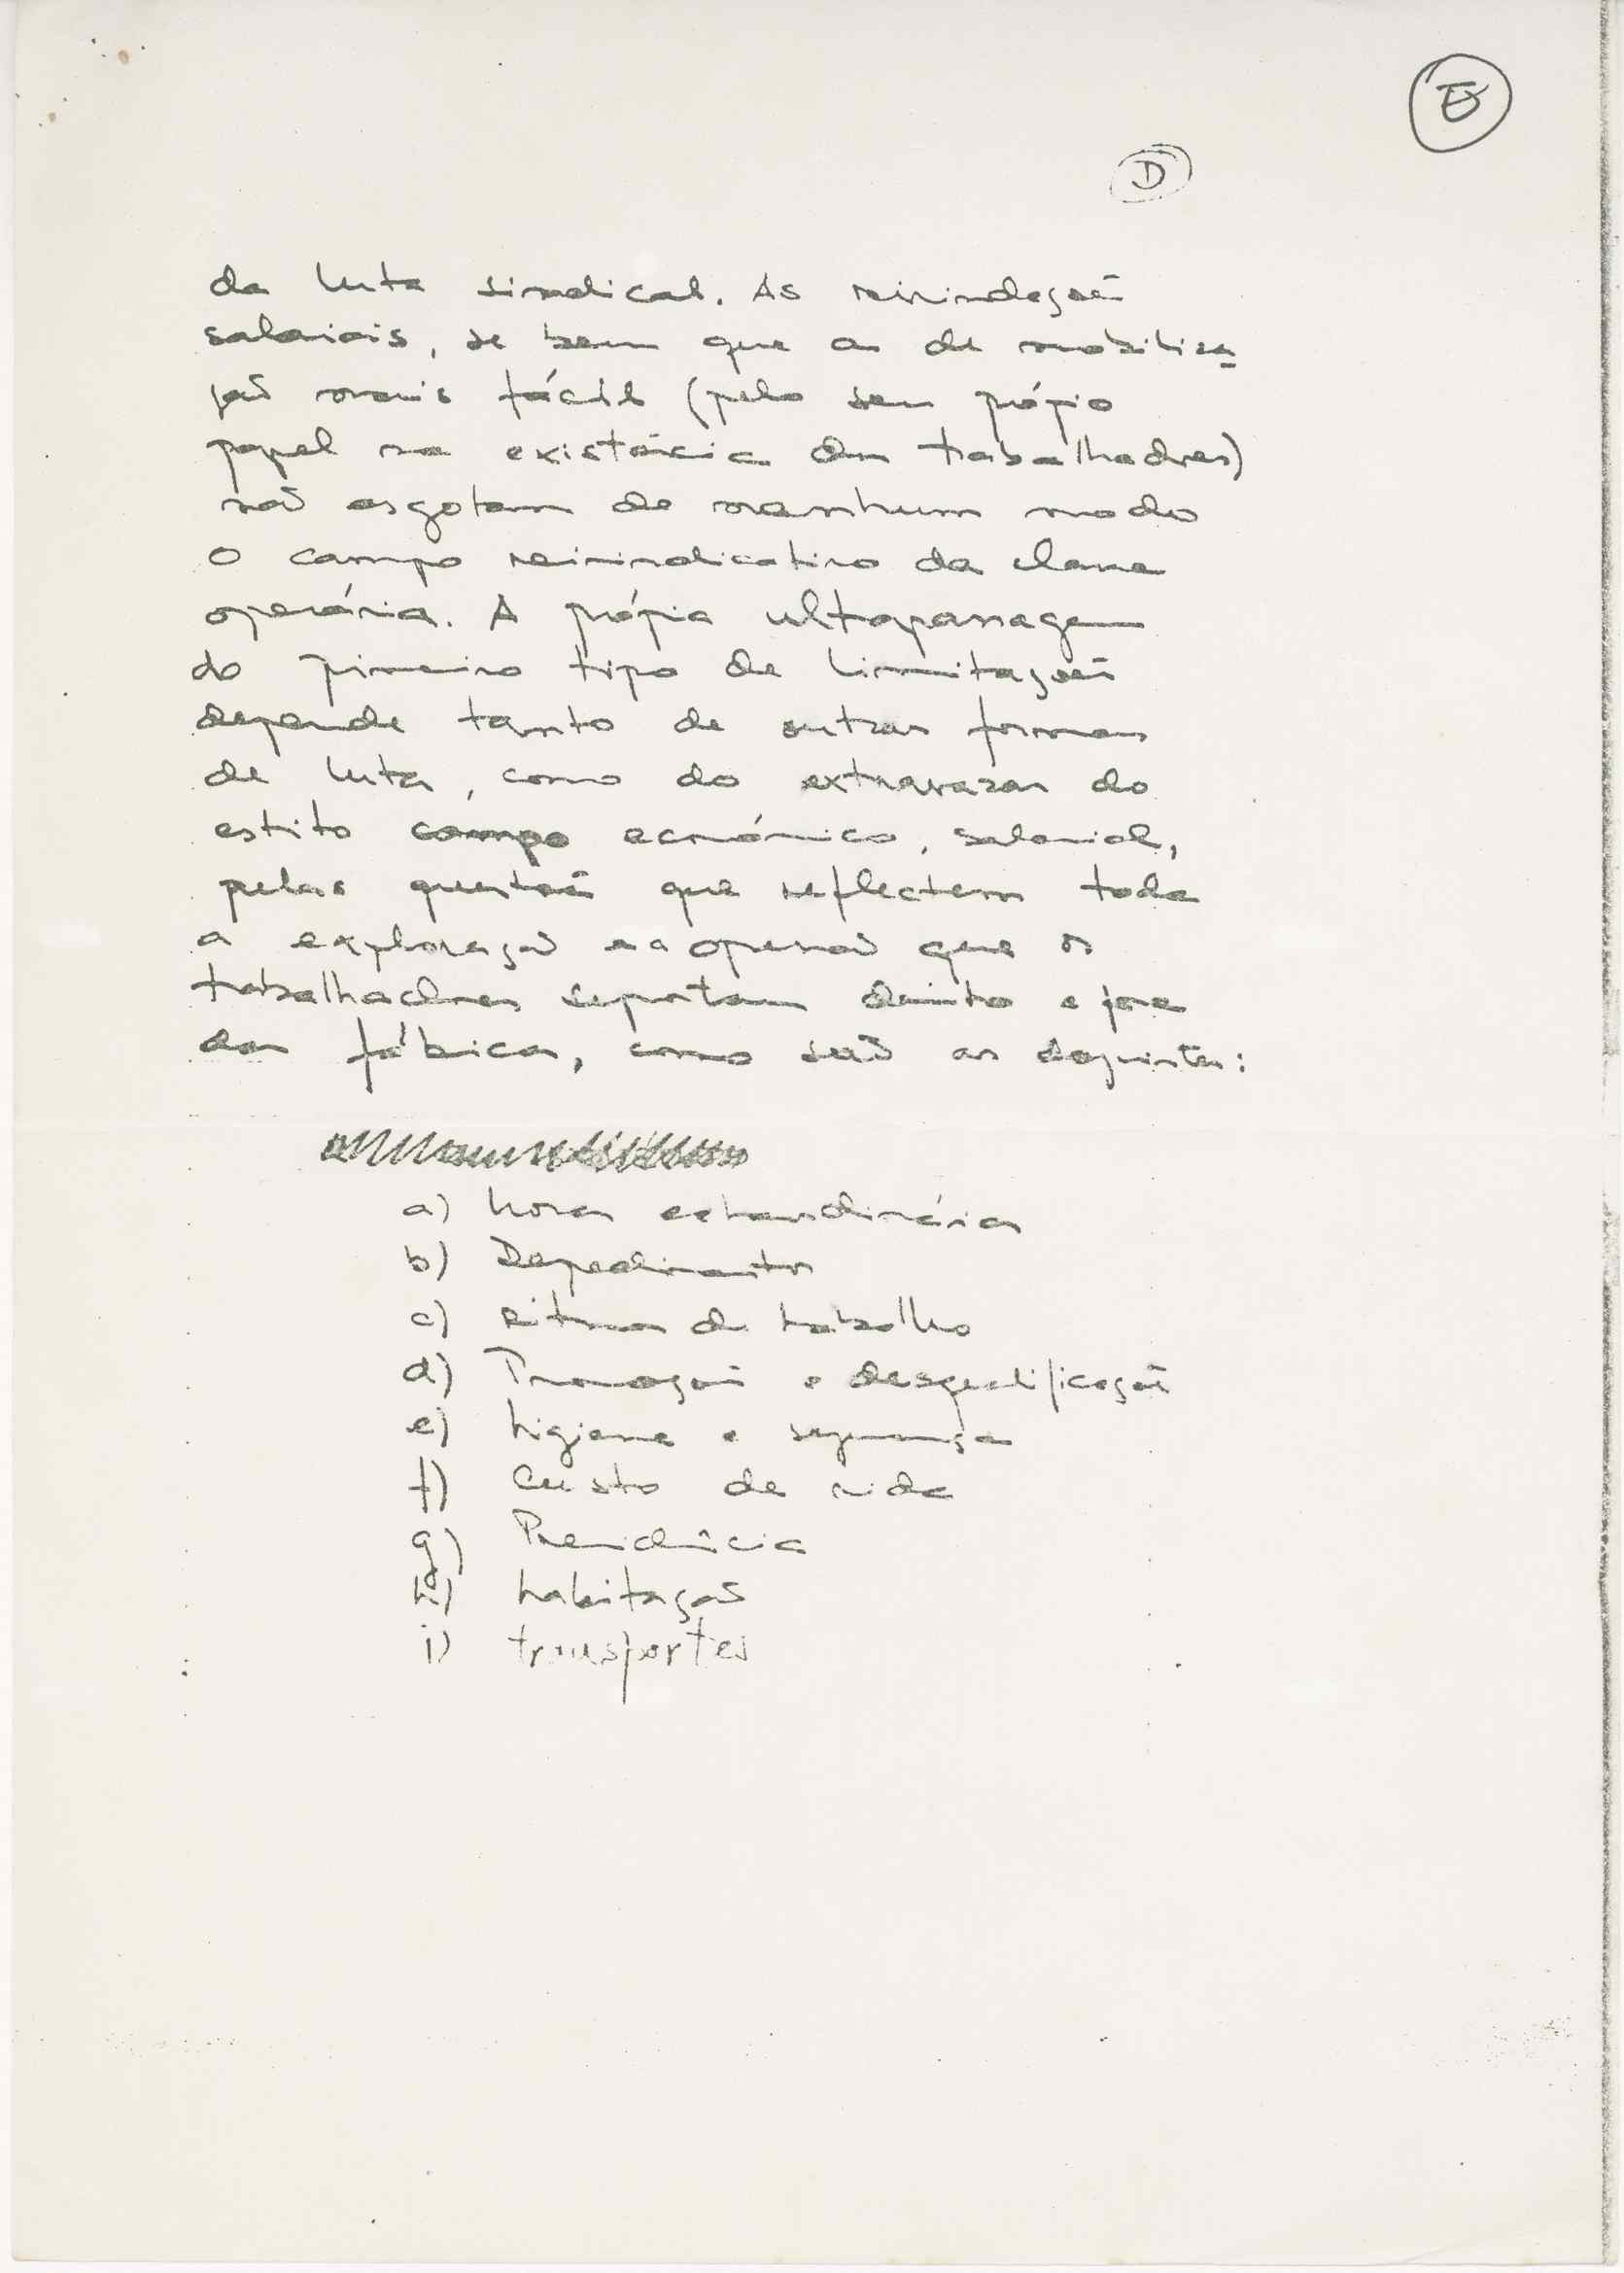 E
D
da luta sindical. As reivindicações
salariais, se bem que as de mobiliza
ção mais fácil (pelo seu própio
papel na existência dos trabalhadores)
não esgotam de nenhum modo
o campo reivindicativo da classe
operária. A própia ultrapassagem
do primeiro tipo de limitações
depende tanto de outras formas
de luta, como do extravazar do
estrito campo económico, salarial,
pelas questões que reflectem toda
a exploração e a opressão que os
trabalhadores suportam dentro e fora
das fábricas, como são as seguintes:
a) horas extraordinárias
b) Despedimentos
c) Ritmos de trabalho
d) Promoções e desqualificações
e) higiene e segurança
f) Custo de vida
g) Previdência
h) habitação
i) transportes